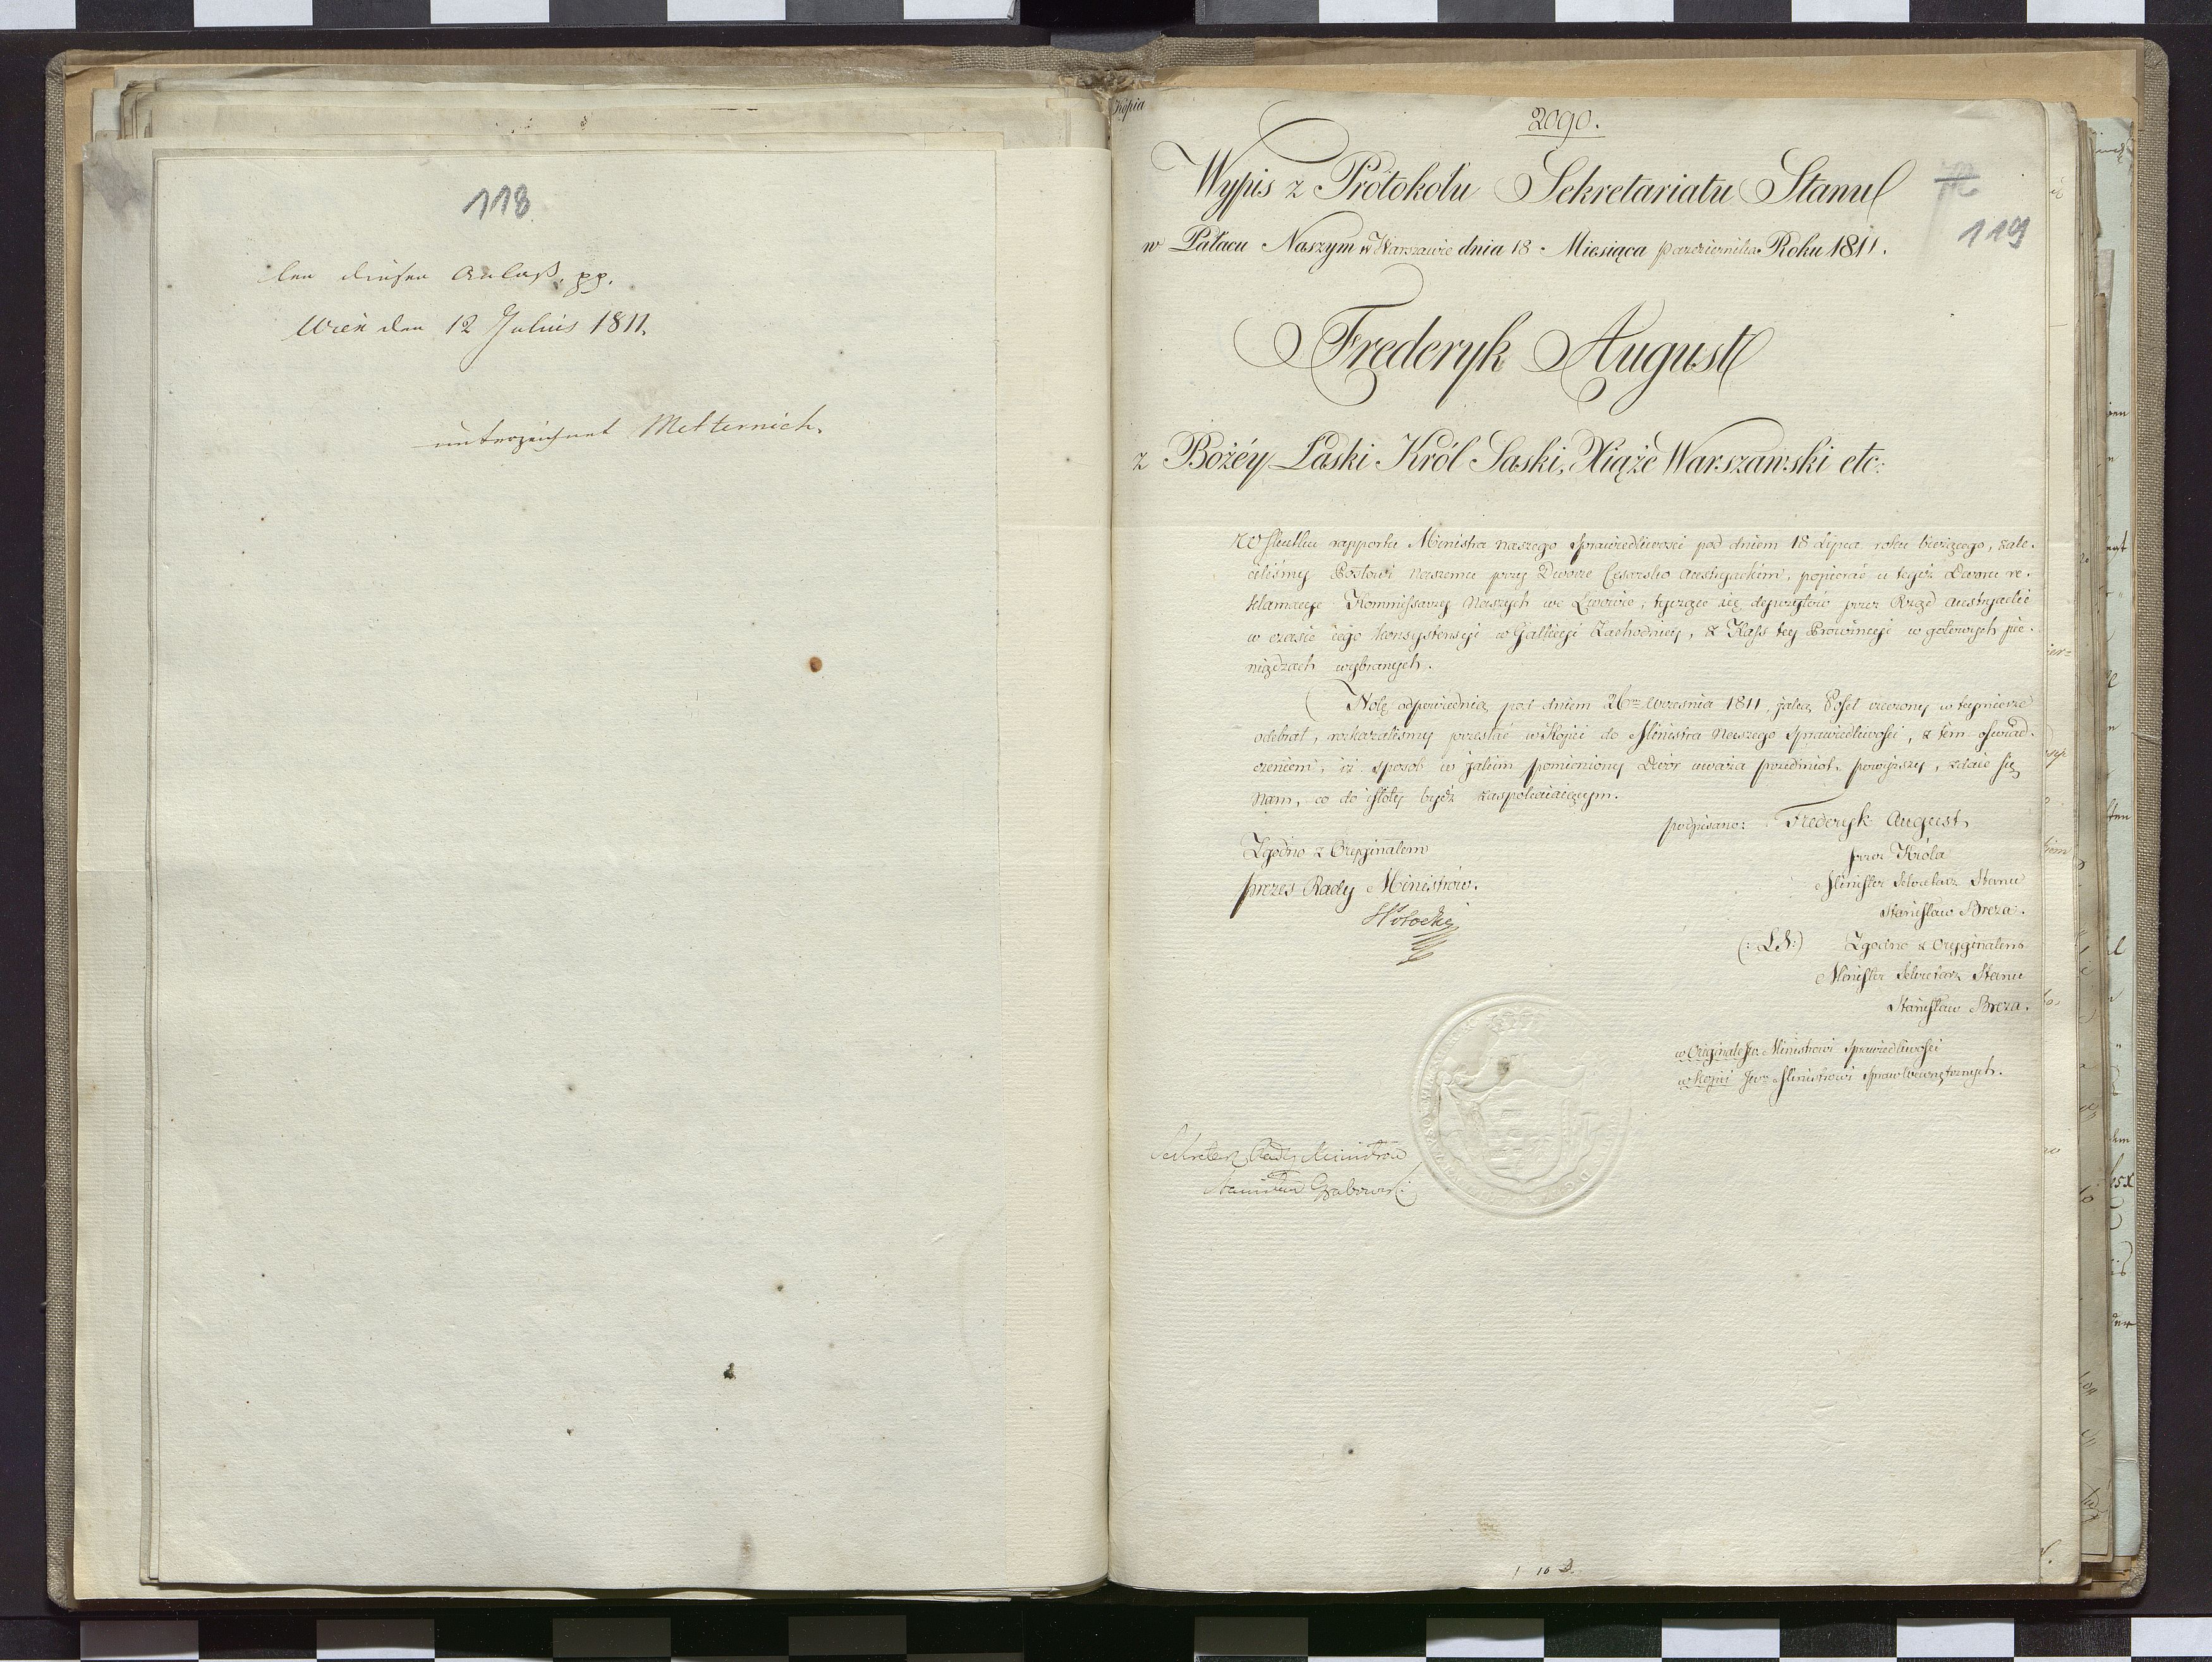 118
len diesen Anlaß. pp.
Wien den 12 Julius 1811.
unterzeichnet Metternich.
Kopia
2090.
119
Wypis z Protokołu Sekretariatu Stanu
w Pałacu Naszym w Warszawie dnia 18 Miesiąca pazdziernika Roku 1811.
Frederyk August
z Bożéy Łaski Król Saski, Xiąże Warszawski etc:
W skutku rapportu Ministra naszego Sprawiedliwości pod dniem 18 Lipca roku bieżącego, zale-
ciliśmy Posłowi Naszemu przy Dworze Cesarsko Austryackim, popierać u tegoż Dworu re-
klamacye Kommissarzy Naszych we Lwowie, tyczące się depozytów przez Rząd Austryacki
w czasie iego konsystencyi w Gallicyi Zachodniey, z Kass tey Prowincyi w gotowych pie-
niądzach wybranych.
Notę odpowiednią pod dniem 26 Września 1811, jaką Poseł rzeczony w tey mierze
odebrał, rozkazaliśmy przesłać w Kopii do Ministra Naszego Sprawiedliwości, z tem oświad-
czeniem, iż sposób w jakim pomieniony Dwór uważa przedmiot powyższy, zdaie się
Nam, co do istoty bydź zaspokaiaiącym.
podpisano: Frederyk August,
przez Króla
Minister Sekretarz Stanu
Stanisław Breza.
(: L.S :) Zgodno z Oryginałem
Minister Sekretarz Stanu
Stanisław Breza.
Zgodno z Oryginałem
prezes Rady Ministrów.
SPotocki
w Originale Jw. Ministrowi Sprawiedliwości
w Kopii Jwu Ministrowi Spraw Wewnętrznych.
Sekretarz Rady Ministrów
Stanisław Grabowski